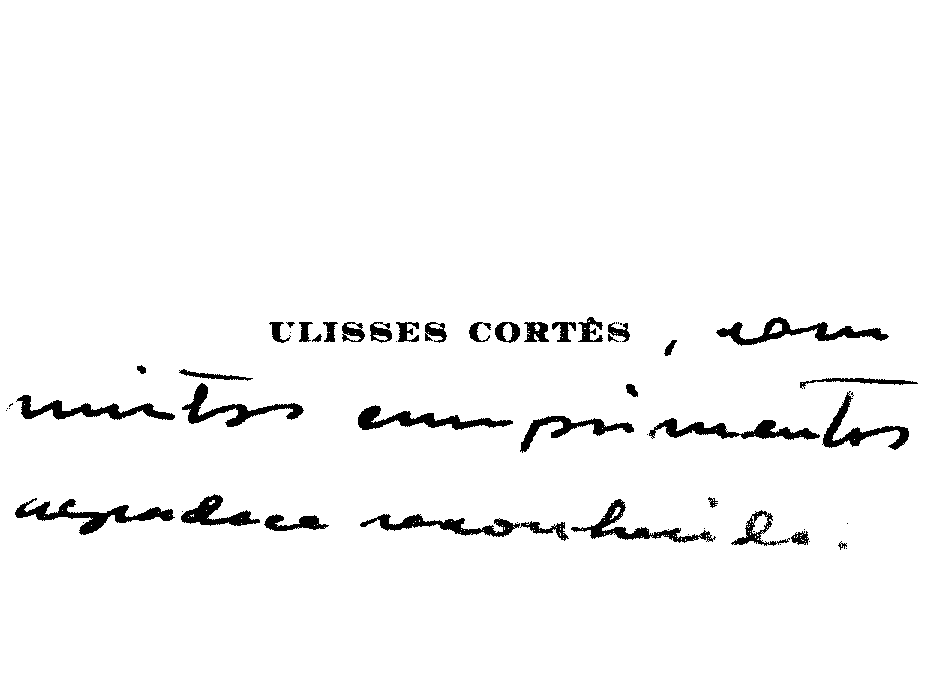 ULISSES CORTÊS, com
muitos cumprimentos
agradece reconhecido.